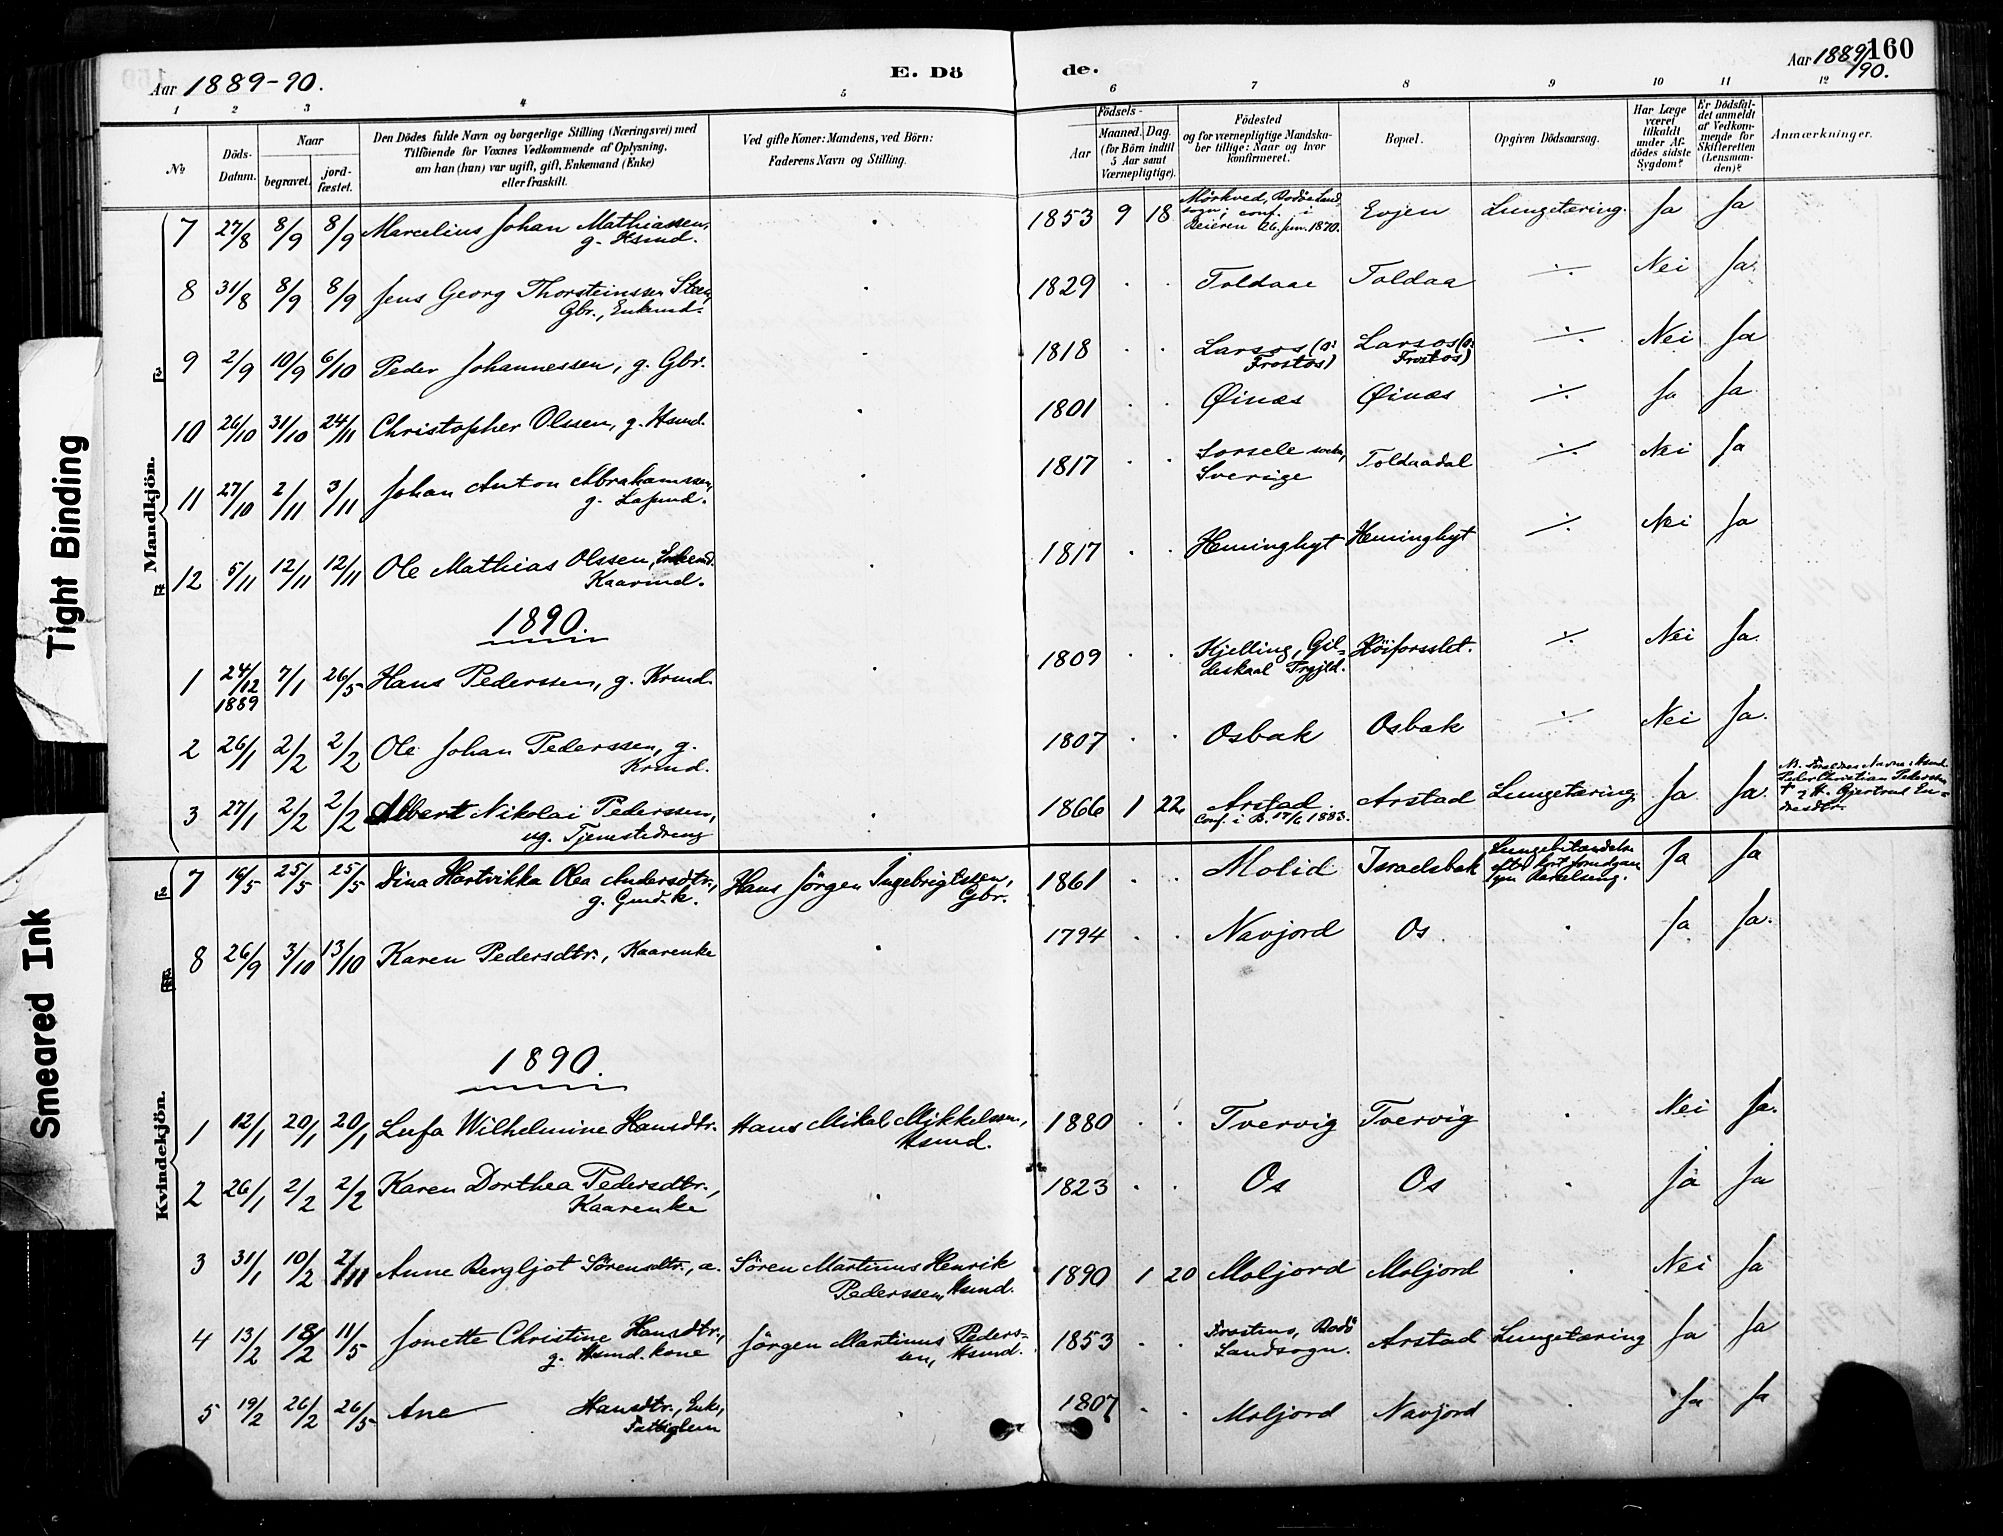 Aar 1889-90.
E. Dö
de.
Aar 1889/90.
160
1 2 3 4 5
6 7 8 9 10 11 12
No
Döds-Datum.
Naar
begravet.
jord-fæstet.
Den Dödes fulde Navn og borgerlige Stilling (Næringsvei) med
Tilföiende for Voxnes Vedkommende af Oplysning,
om han (hun) var ugift, gift, Enkemand (Enke)
eller fraskilt.
Ved gifte Koner: Mandens, ved Börn:
Faderens Navn og Stilling.
Födsels-
Aar
Maaned. Dag.
(for Börn indtil
5 Aar samt
Værnepligtige).
Födested
og for værnepligtige Mandska-
ber tillige: Naar og hvor
konfirmeret.
Bopæl.
Opgiven Dödsaarsag.
Har Læge
været
tilkaldt
under Af-
dödes sidste
Sygdom?
Er Dödsfal-
det anmeldt
af Vedkom-
mende for
Skifteretten
(Lensman-
den)?
Anmærkninger.
Mandkjön.
7 27/8 8/9 8/9 Marcelius Johan Mathiassen,
g. Hsmd.
1853 9 18 Mörkved, Bodö Land-
sogn; conf. i
Beieren 26 Jun. 1870.
Evjen Lungetæring. Ja Ja
8 31/8 8/9 8/9 Jens Georg Thorsteinssen
Gbr., Enkmd.
1829 Toldaae Toldaa ÷ Nei Ja.
9 2/9 10/9 6/10 Peder Johannessen, g. Gbr.
1818 Larsos (o:
Frostos)
Larsos (o:
Frostos)
÷ Nei Ja
10 26/10 31/10 24/11 Christopher Olssen, g. Hsmd.
1801 Øinæs Øinæs ÷ Ja Ja.
11 27/10 2/11 3/11 Johan Anton Abrahamssen,
g.
1817 Sorsele
Sverige
Toldaadal ÷ Nei Ja
12 5/11 12/11 12/11 Ole Mathias Olssen, Enkemd.
Kaarmd.
1817 Heminghyt Heminghyt ÷ Nei Ja
1890.
1 24/12 1889 7/1 26/5 Hans Pederssen, g. Krmd.
1809 Kjelling, Gil-
deskaal Prgjld.
Höiforsslet. ÷ Nei Ja.
2 26/1 2/2 2/2 Ole Johan Pederssen, g.
Krmd.
1807 Osbak Osbak ÷ Nei Ja.
3 27/1 2/2 2/2 Albert Nikolai Pederssen,
ug. Tjenestedreng
1866 1 22 Arstad.
Conf. i B. 17/6 1883.
Arstad Lungetæring Ja Ja
Peder Christian Pederssen
Gjertrud En-
dresdtr.
Kvindekjön.
7 16/5 25/5 25/5 Dina Hartvikka Olea Andersdtr.,
g. Gmd.k.
Hans Jörgen Ingebrigtssen,
Gbr.
1861 Molid Israelsbak Lungebetændelse
efter kort forudgan-
gen Barselseng.
Ja Ja
8 26/9 3/10 13/10 Karen Pedersdtr., Kaarenke
1794 Navjord Os Ja Ja.
1890.
1 12/1 20/1 20/1 Lufa Wilhelmine Hansdtr.
Hans Mikal Mikkelssen,
Hsmd.
1880 Tvervig Tvervig Nei Ja.
2 26/1 2/2 2/2 Karen Dorthea Pedersdtr.,
Kaarenke
1823 Os Os Ja Ja
3 31/1 10/2 Anne Bergljot Sörensdtr., a.
Sören Martinus Henrik
Pederssen, Hsmd.
1890 1 20 Moljord Moljord Nei Ja
4 13/2 18/2 11/5 Jonette Christine Hansdtr.,
g. Hsmd. kone
Jörgen Martinus Peders-
sen, Hsmd.
1853 Bodö
Landsogn.
Arstad Lungetæring Ja Ja
5 19/2 26/2 26/5 Ane Hansdtr., Enke,
Fattiglem
1807 Moljord Navjord Ja Ja
Tight Binding
Smeared Ink